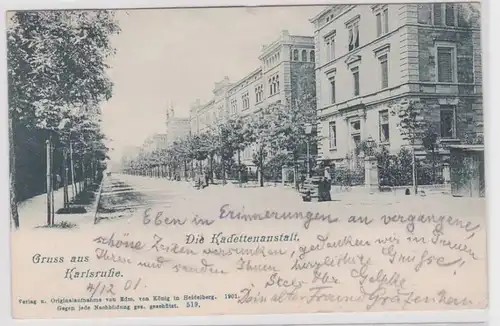 Die Kadettenanstalt.
Gruss aus
Karlsruhe.
4/12.01.
Eben in Erinnerungen an vergangene,
schöne Zeiten versunken, gedenken wir in Treuen
Ihrer und senden Ihnen herzlichste Grüße,
Stets Ihr
Dein alter Freund
Verlag u. Originalaufnahme von Edm. von König in Heidelberg. 1901.
Gegen jede Nachbildung ges. geschützt. 519.